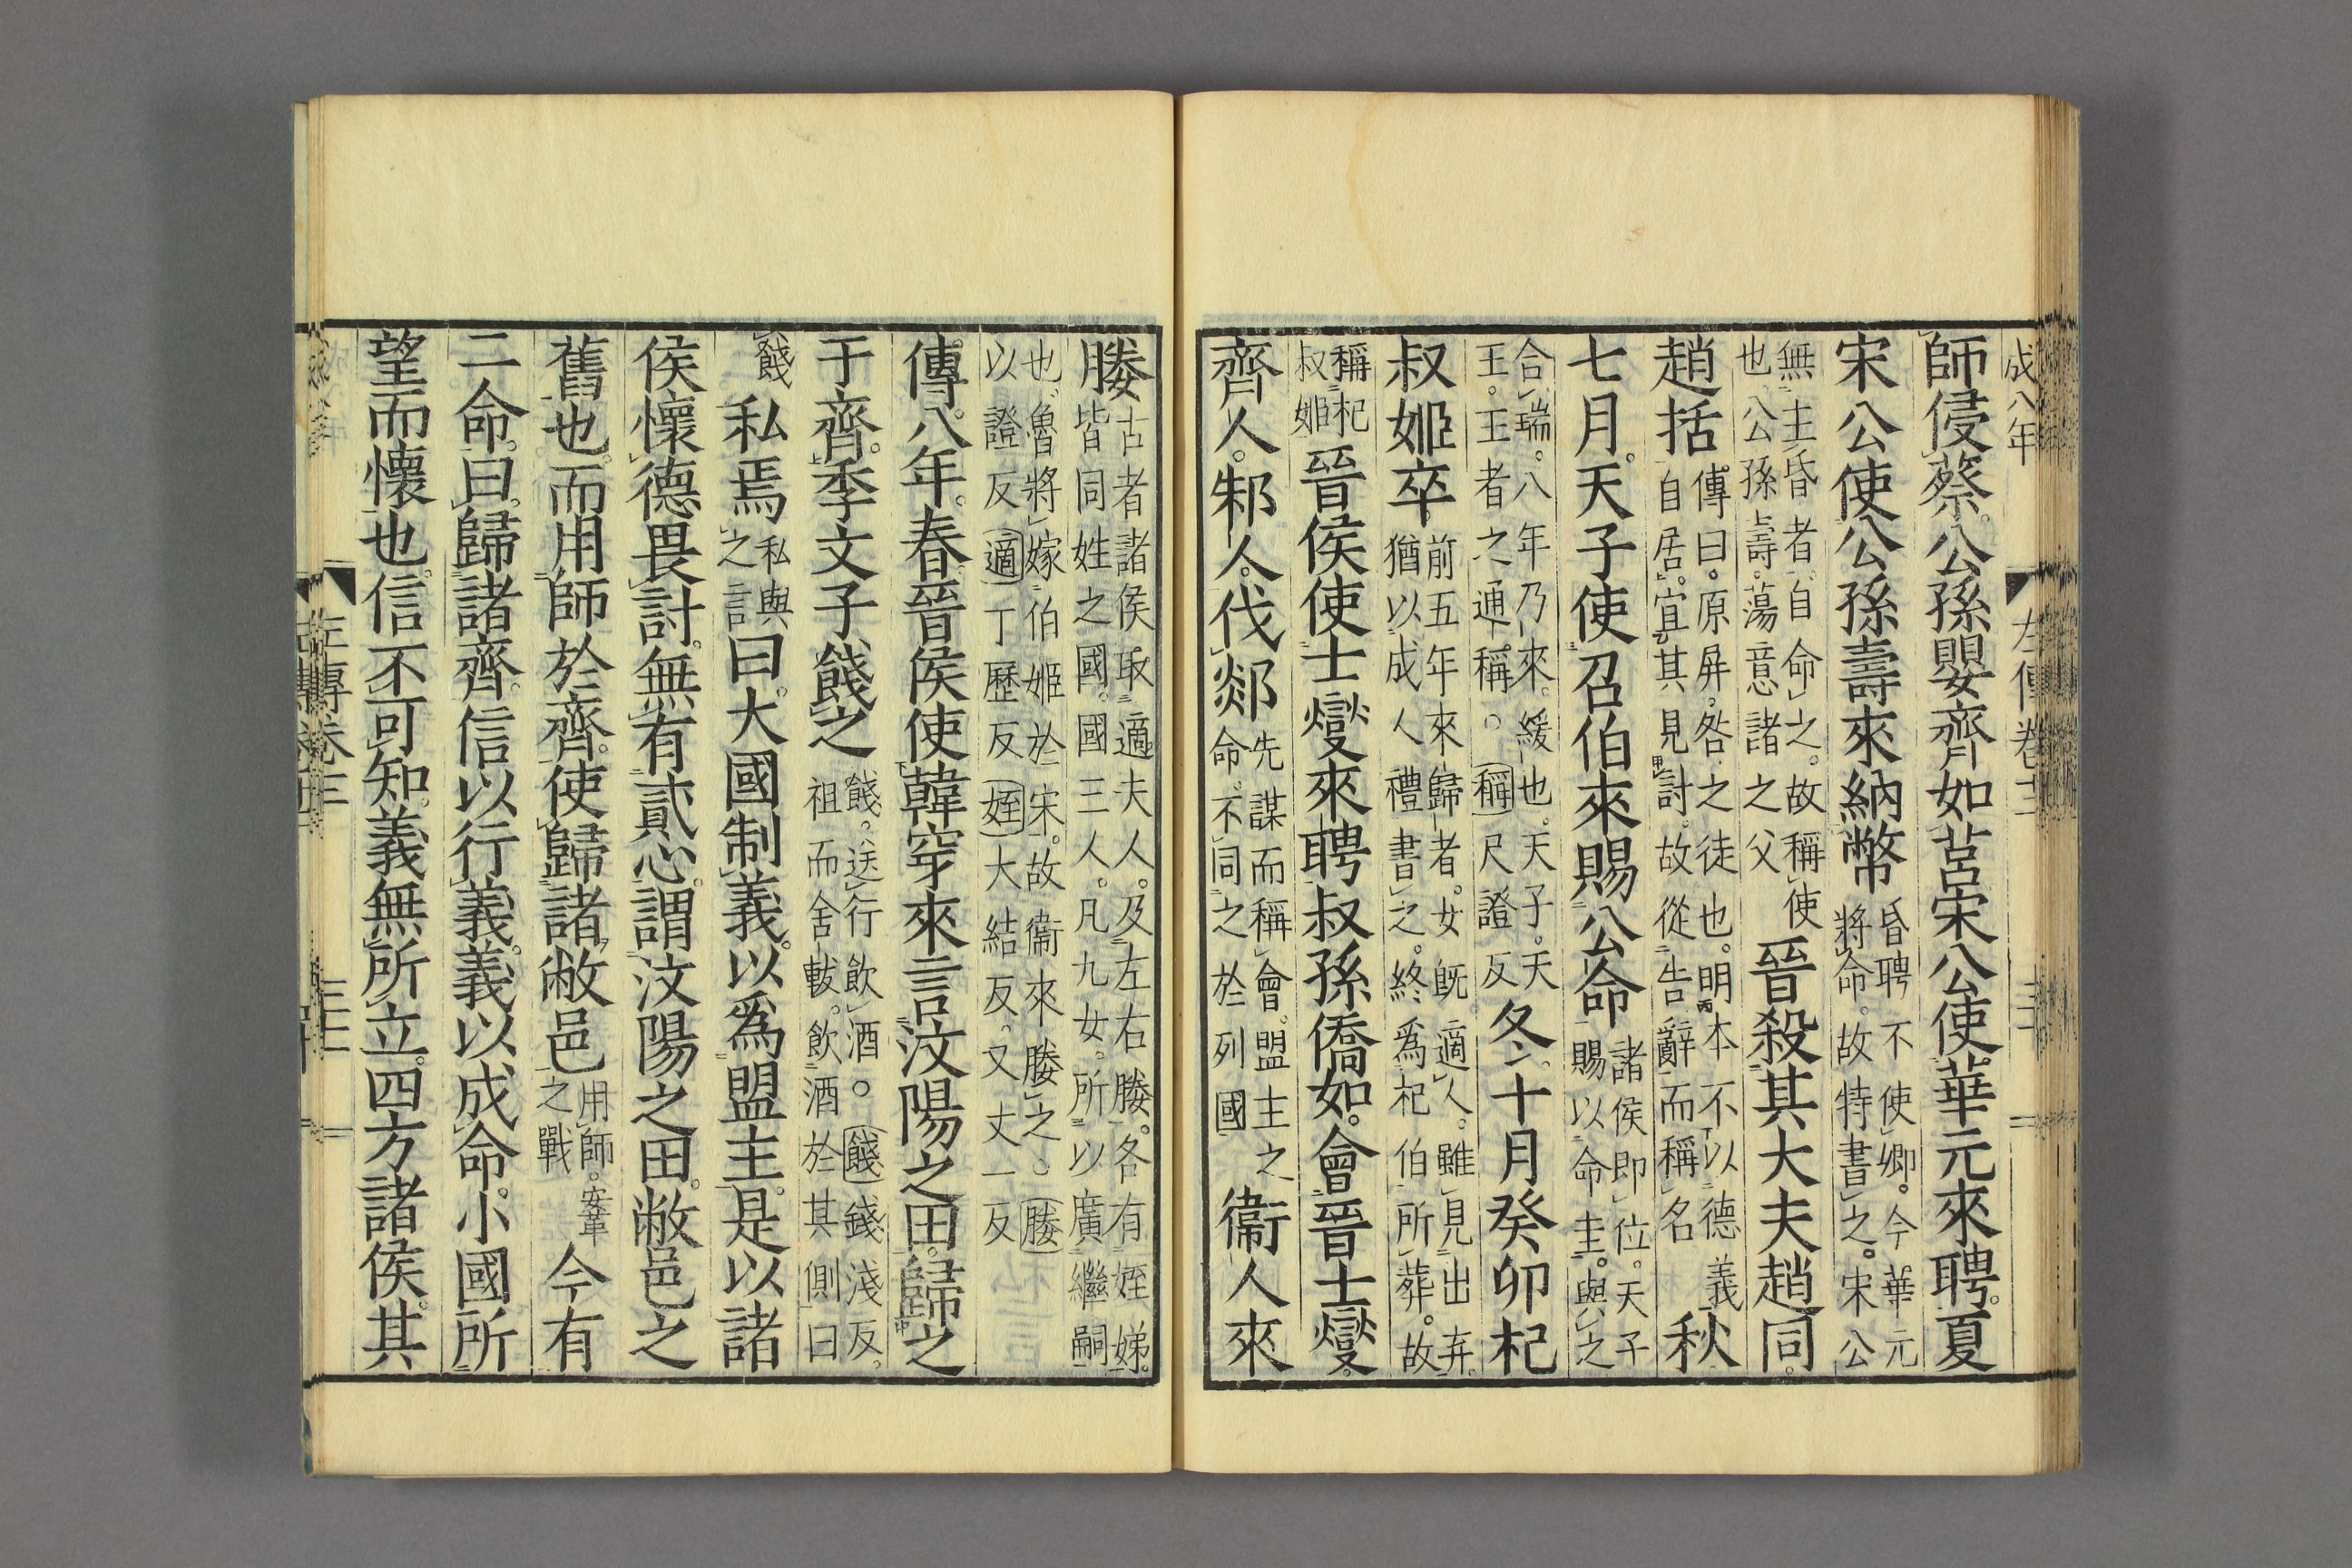 成八年
左傳卷十二
師侵蔡公孫嬰齊如莒宋公使華元來聘夏
宋公使公孫壽來納幣昏聘不使卿今華元將命故特書之宋公
無主昏者自命之故稱使也公孫壽蕩意諸之父晉殺其大夫趙同
趙括傳曰原屏咎之徒也明本不以德義自居宜其見討故從告辭而稱名秋
七月天子使召伯來賜公命諸侯即位天子賜以命圭與之
合瑞八年乃來緩也天子天王王者之通稱。稱尺證反冬十月癸卯杞
叔姬卒前五年來歸者女既適人雖見出弃猶以成人禮書之終爲杞伯所葬故
稱杞叔姬晉侯使士燮來聘叔孫僑如會晉士燮
齊人邾人伐郯先謀而稱會盟主之命不同之於列國衞人來
媵古者諸侯取適夫人及左右媵各有姪娣皆同姓之國國三人凡九女所以廣繼嗣
也魯將嫁伯姬於宋故衞來媵之。媵以證反適丁歷反姪大結反又丈一反
傳八年春晉侯使韓穿來言汶陽之田歸之
于齊季文子餞之餞送行飲酒。餞錢淺反祖而舍軷飲酒於其側曰
餞私焉私與之言曰大國制義以爲盟主是以諸
侯懷德畏討無有貳心謂汶陽之田敝邑之
舊也而用師於齊使歸諸敝邑用師鞌之戰今有
二命曰歸諸齊信以行義義以成命小國所
望而懷也信不可知義無所立四方諸侯其